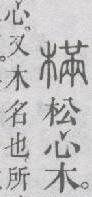 樠松心木。
心。又木名也。所